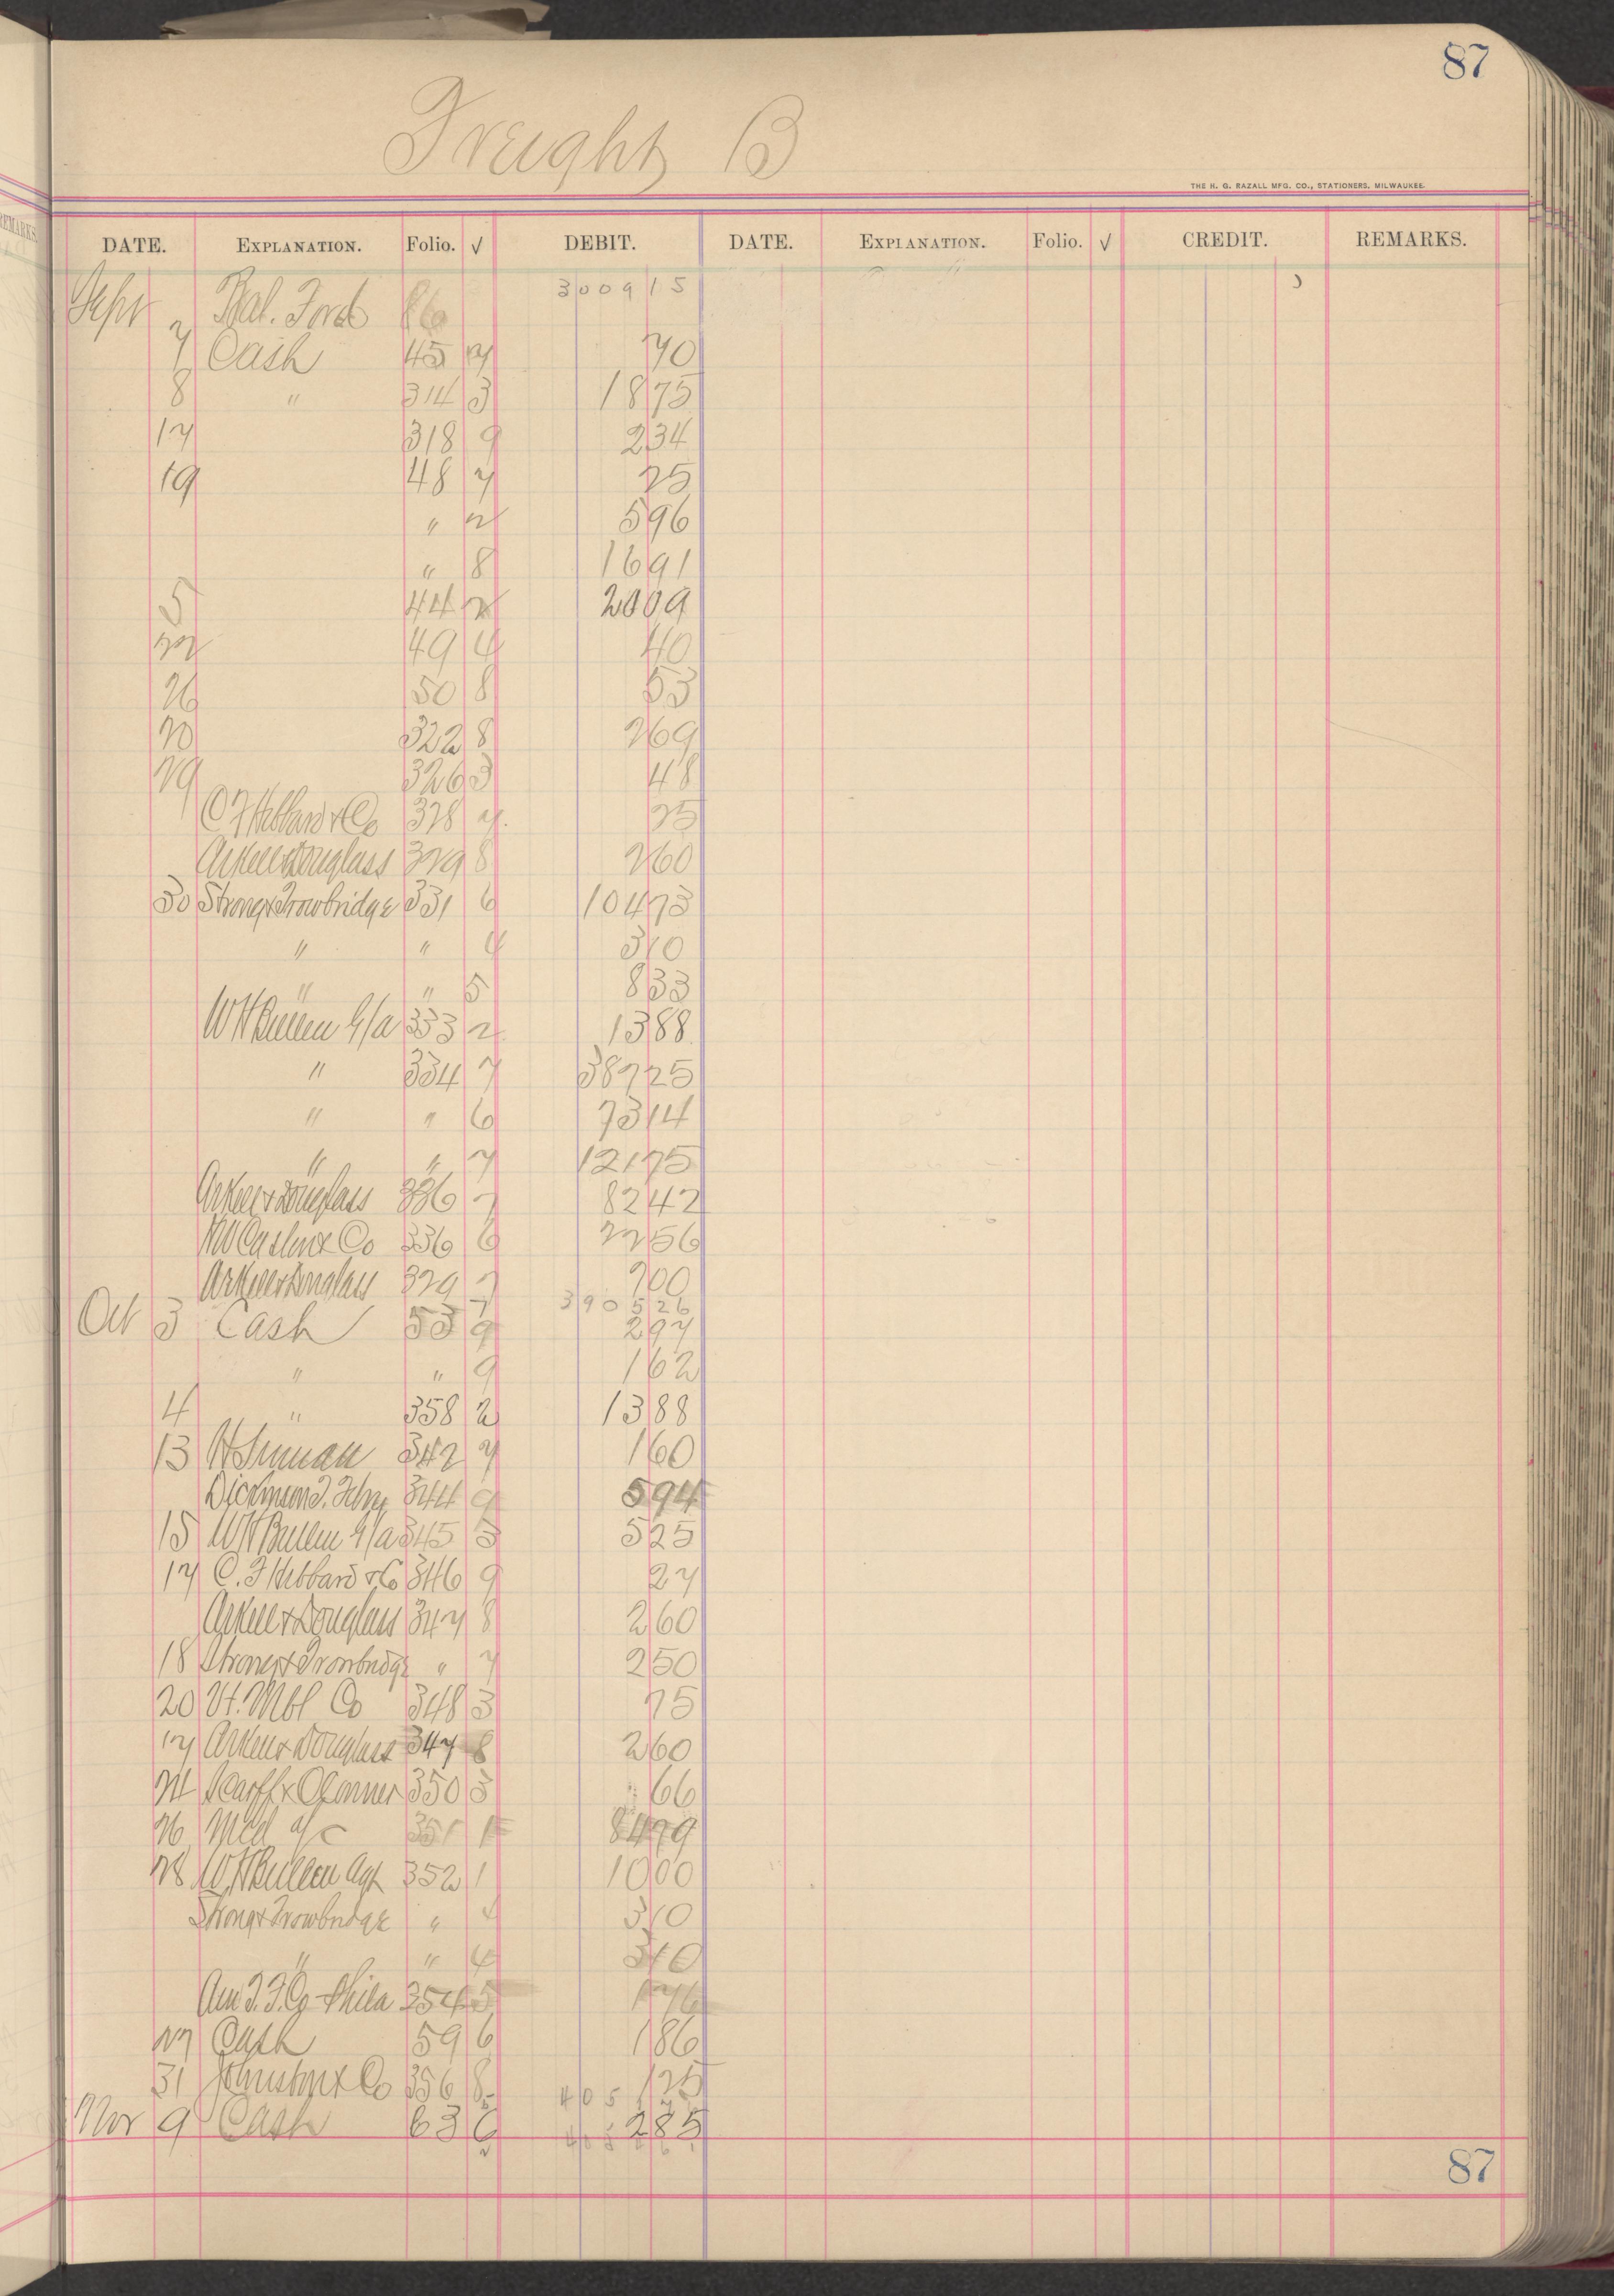 87
Freight B
THE H. G. RAZALL MFG. CO., STATIONERS, MILWAUKEE.
DATE. EXPLANATION. Folio. √ DEBIT. DATE. EXPLANATION. Folio. √ CREDIT. REMARKS.
Sept Bal. Ford 86 3009 15
7 Cash 45 7 70
8 " 314 3 18 75
17 318 9 2 34
19 48 7 25
" 2 5 96
" 8 16 91
5 44 2 20 09
22 49 4 40
26 50 8 53
20 322 8 2 69
29 326 3 48
C F Hebbard & Co 328 7 25
Arkell & Douglass 329 8 2 60
30 Strong & Trowbridge 331 6 104 73
" " 4 3 10
" " 5 8 33
W H Bullen G/a 333 2 13 88
" 334 7 387 25
" " 6 73 14
" " 7 121 75
Arkell & Douglass 336 7 82 42
& Co 336 6 22 56
Arkell & Douglass 329 7 7 00
3905 26
Oct 3 Cash 53 9 2 97
" " 9 1 62
4 " 358 2 13 88
13 342 7 1 60
344 9 5 94
15 W H Bullen G/a 345 3 5 25
17 C. F Hebbard & Co 346 9 27
Arkell & Douglass 347 8 2 60
18 Strong & Trowbridge " 7 2 50
20 Vt. Mbl Co 348 3 75
17 Arkell & Douglass 347 8 2 60
24 Scarff & O'Connor 350 3 66
26 Mdl a/c 351 1 84 79
28 W H Bullen Agt 352 1 10 00
Strong & Trowbridge " 4 3 10
" " 4 3 10
Am T. F. Co Phila 354 5 1 76
27 Cash 59 6 1 86
31 Johnston & Co 356 8 1 25
405
Nov 9 Cash 63 6 2 85
87